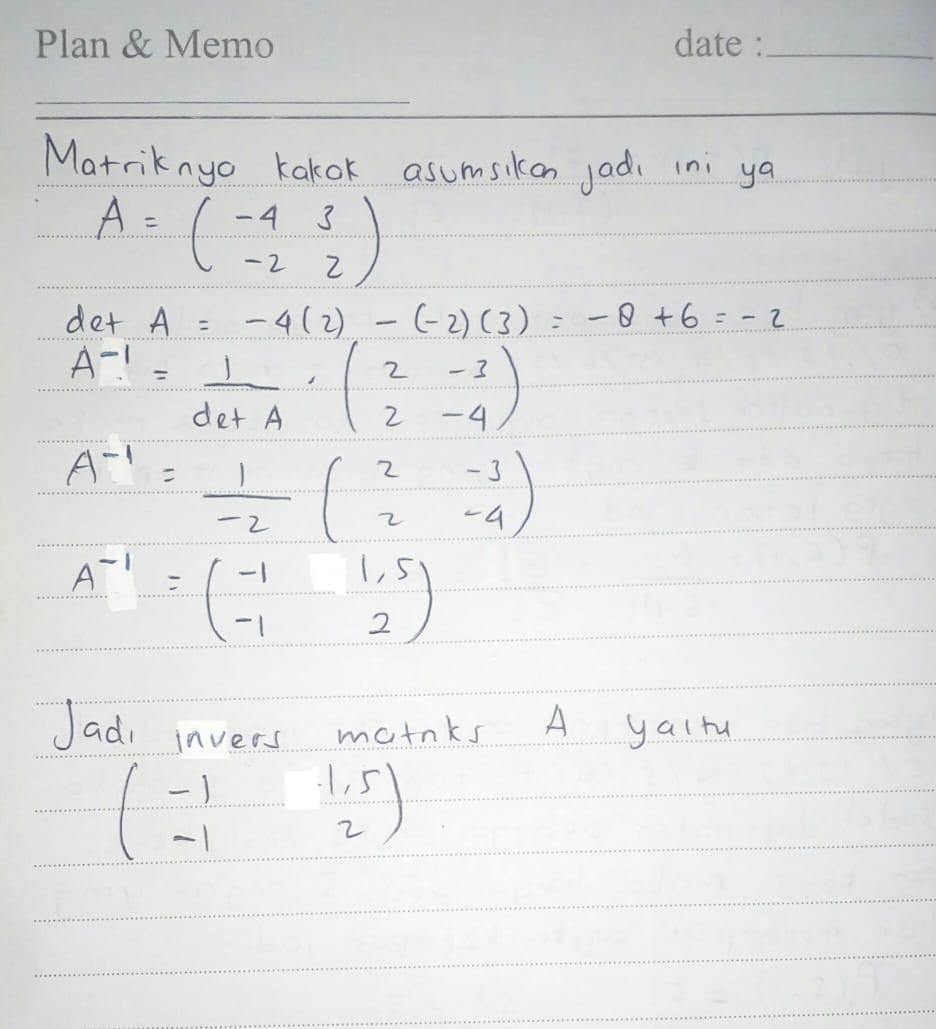 Plan & Memo date :
Matriknyo kakok asumsikan jadi ini ya
A = ( -4 3
-2 2 )
det A = -4(2) - (-2)(3) = -8 + 6 = -2
A⁻¹ = 1/det A . ( 2 -3
2 -4 )
A⁻¹ = 1/-2 ( 2 -3
2 -4 )
A⁻¹ = ( -1 1,5
-1 2 )
Jadi invers matriks A yaitu
( -1 1,5
-1 2 )